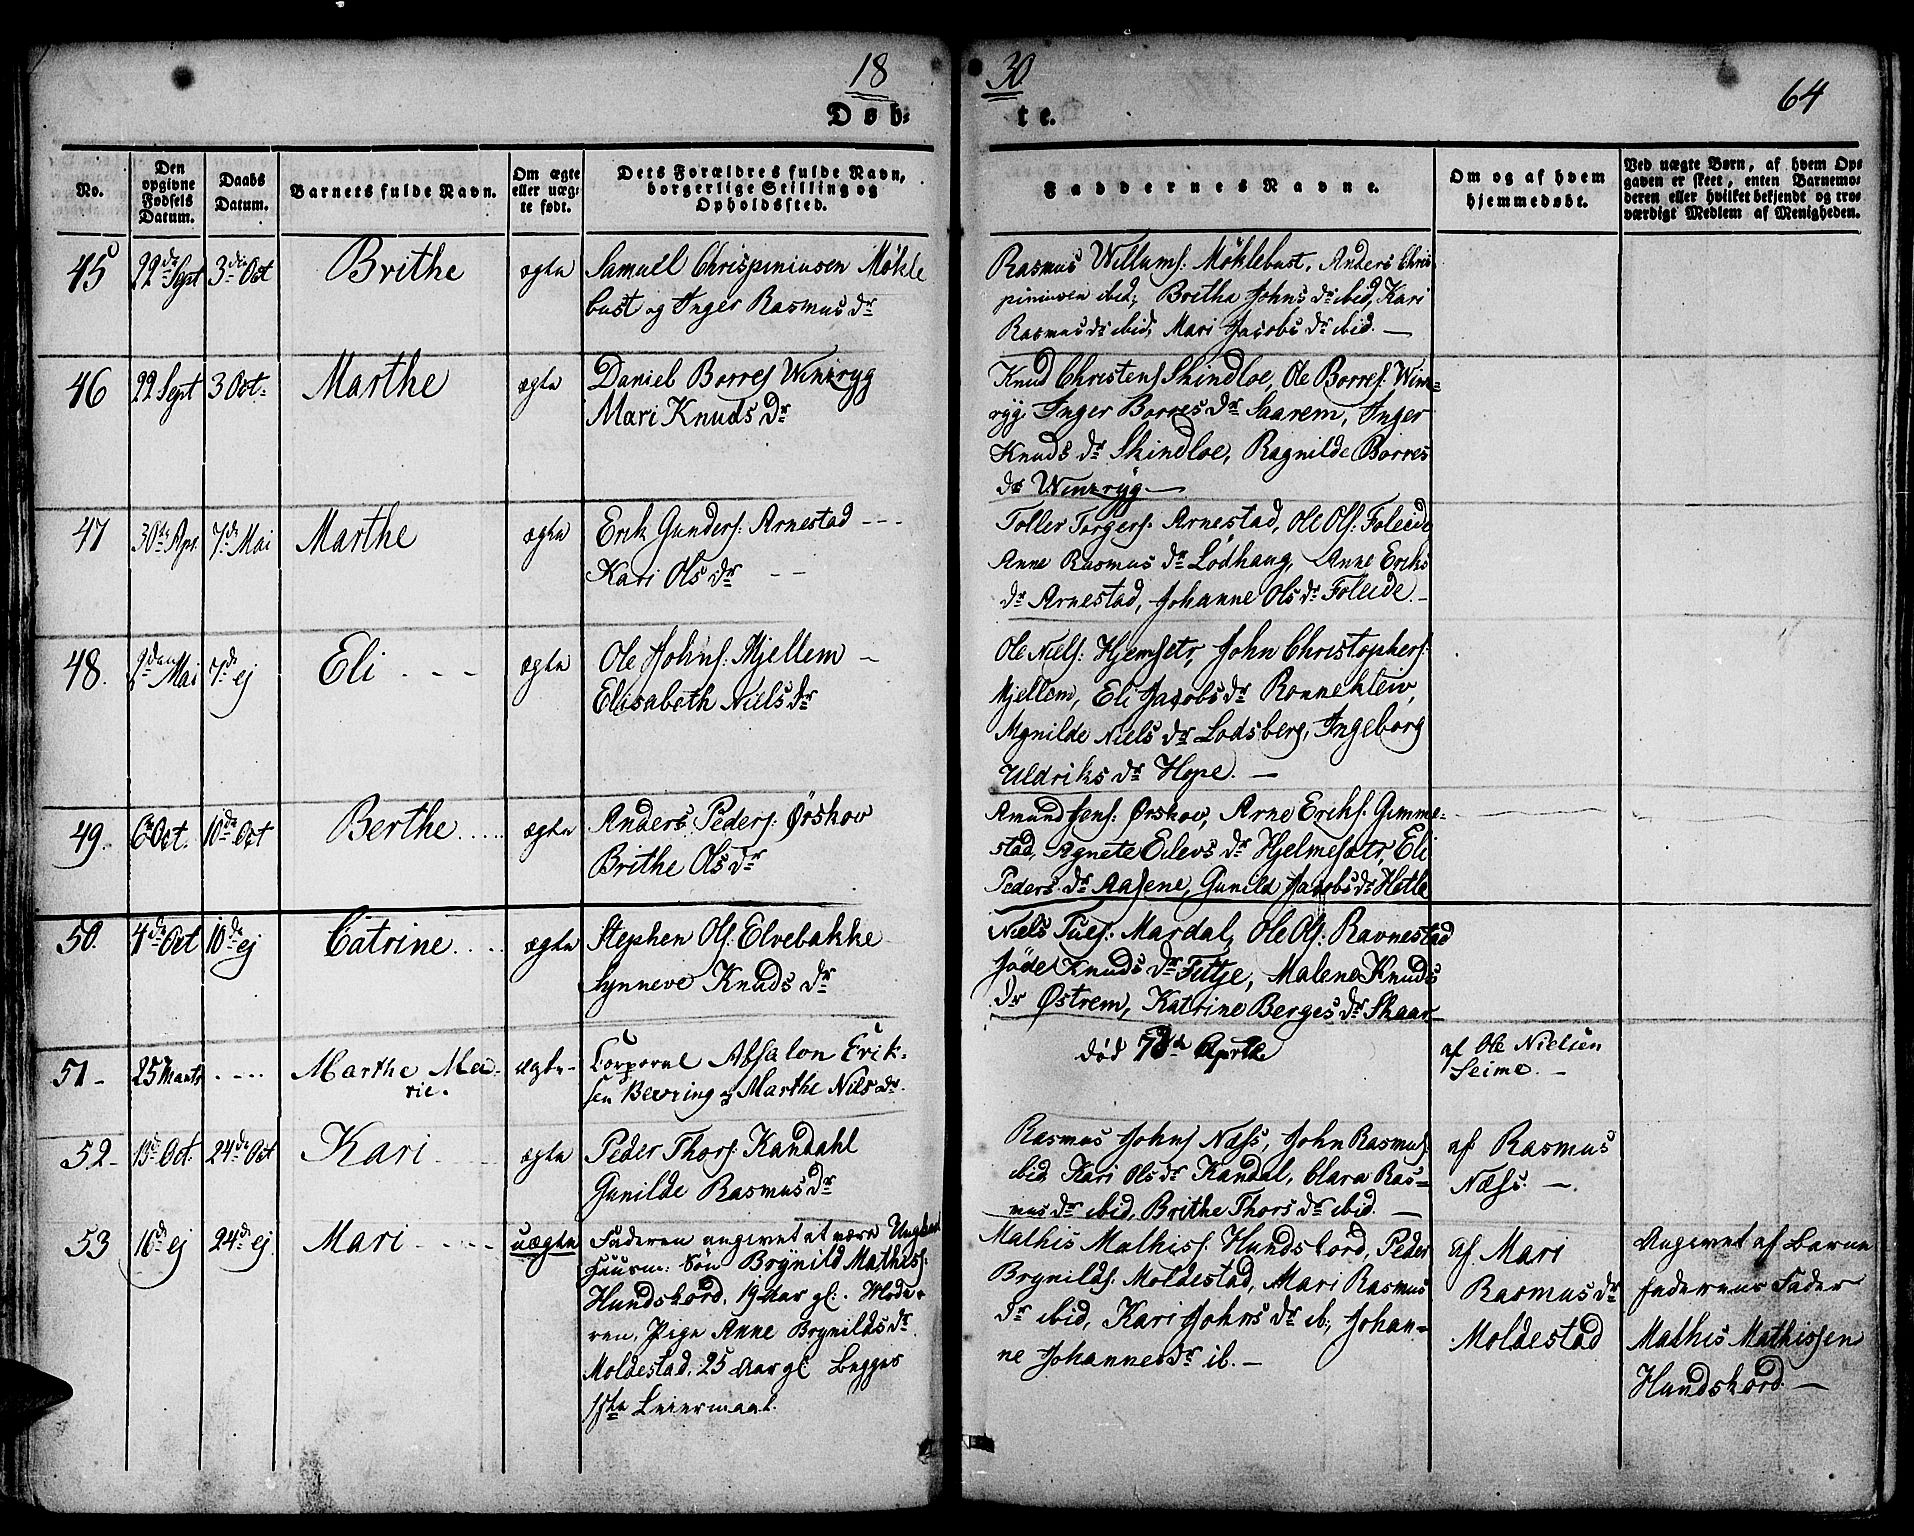 18
30
64
Døb-
te.
No.
Den
opgivne
Fødsels
Datum.
Daabs
Datum.
Barnets fulde Navn.
Om ægte
eller uæg-
te født.
Dets Forældres fulde Navn,
borgerlige Stilling og
Opholdssted.
Faddernes Navne.
Om og af hvem
hjemmedøbt.
Ved uægte Børn, af hvem Op-
gaven er skeet, enten Barnemo-
deren eller hvilket bekjendt og tro-
værdigt Medlem af Menigheden.
45 22de Sept 3die Oct Brithe ægte
Samuel Chrispiniusen Møkle
bust og Inger Rasmus dr
Rasmus Willums: Møklebust, Anders Chris
piniusen ibid, Brithe Johns dr ibid, Kari
Rasmus dr ibid, Mari Jacobs dr ibid. —
46 22 Sept 3 Oct. Marthe ægte
Daniel Borres Winzryg
Mari Knuds Dr
Knud Christens Skindloe, Ole Borres: Winz-
ryg Inger Borres Dr Saarem, Inger
Knuds dr Skindloe, Ragnilde Borres
dr Winzryg —
47 30te Apr. 7de Mai Marthe ægte
Erik Gunders: Arnestad ---
Kari Ols dr --
Toller Torgers: Arnestad, Ole Ols: Foleide
Anne Rasmus dr Lödhaug, Anne Eriks
dr Arnestad, Johanne Ols dr Foleide. —
48. 2den Mai 7de ej Eli - - - ægte
Ole Johns: Mjellem —
Elisabeth Niels dr
Ole Niels: Hjemsetr, John Christophers:
Mjellem, Eli Jacobs dr Ronnekleiv,
Mgnilde Niels dr Lodsberg, Ingeborg
Uldriks dr Hope. —
49. 6 Oct. 10de Oct Berthe.... ægte
Anders Peders: Ørskov
Brithe Ols dr
Amund Jens: Ørskov, Arne Eriks: Gimme-
stad, Agnete Eilevs dr Hjelmesætr, Eli
Peders dr Aasene, Gunild Jacobs dr Hetle
50. 4de Oct 10de ej Catrine.... ægte
Stephen Ols: Elvebakke
Synneve Knuds dr
Niels Tues: Mardal, Ole Ols: Ravnestad
Jøde Knuds dr Fittje, Malene Knuds
dr Østrem, Katrine Berges dr Skaar —
51 - 25 Marts .... Marthe Ma-
rie. ægte -
Corporal Absalon Erik-
sen Bevring og Marthe Niels dr.
død Aprile
af Ole Nielsen
Seime. —
52 - 15de Oct. 24de Oct Kari ægte
Peder Thors: Kandahl
Gunilde Rasmus dr
Rasmus Johns Næss, John Rasmus:
ibid Kari Ols dr Kandal, Clara Ras-
mus dr ibid, Brithe Thors dr ibid. —
af Rasmus
Næss. —.
53 16de ej 24de ej. Mari - - - - - uægte
Faderen angivet at være Ungkarl
Huusm: Søn Brynild Mathiss:
Hundskord, 19 Aar gl:. Mode-
ren, Pige Anne Brynilds dr
Moldestad, 25 Aar gl Begges
1ste Leiermaal.
Mathis Mathiss: Hundskord, Peder
Brynilds: Moldestad, Mari Rasmus
dr ibid, Kari Johns dr ib., Johan-
ne Johannes dr ib. —
af Mari
Rasmus dr
Moldestad
Angivet af Barne
faderens Fader
Mathis Mathissen
Hundskord —